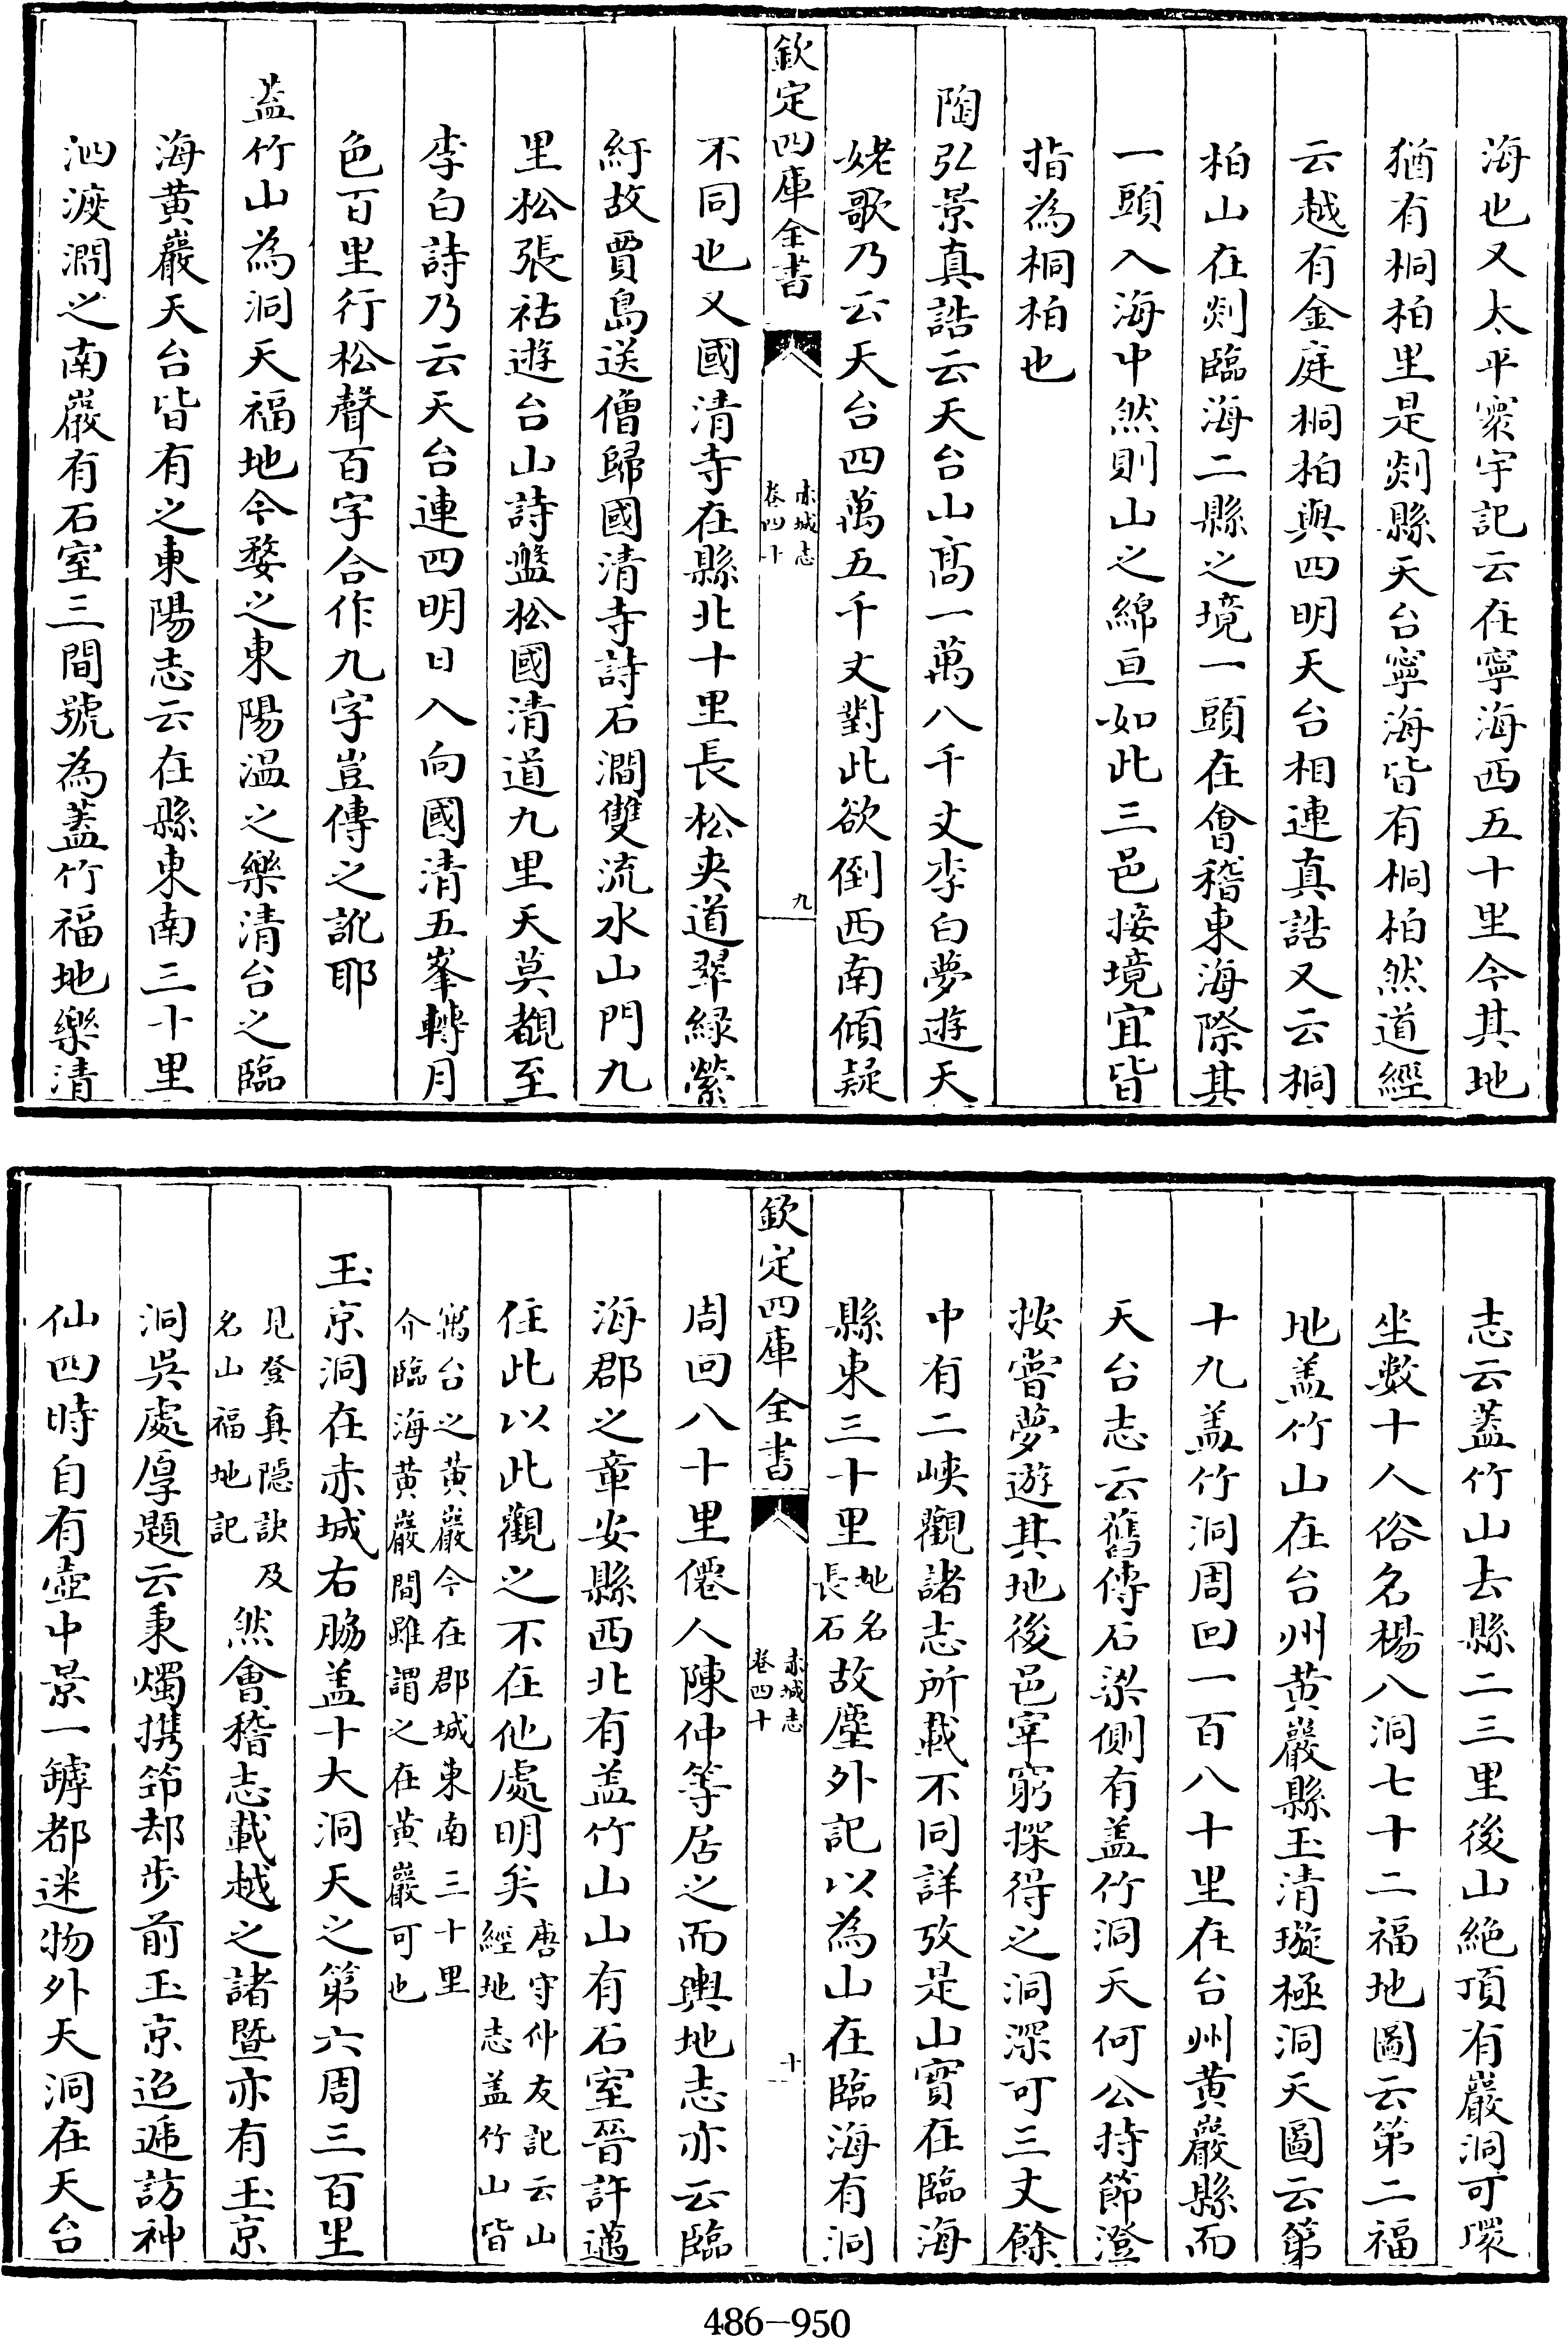 海也又太平寰宇記云在寧海西五十里今其地
猶有桐柏里是剡縣天台寧海皆有桐柏然道經
云越有金庭桐柏與四明天台相連真誥又云桐
柏山在剡臨海二縣之境一頭在會稽東海際其
一頭入海中然則山之綿亘如此三邑接境宜皆
指為桐柏也
陶弘景真誥云天台山髙一萬八千丈李白夢遊天
姥歌乃云天台四萬五千丈對此欲倒西南傾疑
欽定四庫全書
赤城志
卷四十
九
不同也又國清寺在縣北十里長松夾道翠緑縈
紆故賈島送僧歸國清寺詩石澗雙流水山門九
里松張祜遊台山詩盤松國清道九里天莫覩至
李白詩乃云天台連四明日入向國清五峯轉月
色百里行松聲百字合作九字豈傳之訛耶
盖竹山為洞天福地今婺之東陽温之樂清台之臨
海黄巖天台皆有之東陽志云在縣東南三十里
泗渡澗之南巖有石室三間號為蓋竹福地樂清
志云蓋竹山去縣二三里後山絶頂有巖洞可環
坐數十人俗名楊八洞七十二福地圖云第二福
地盖竹山在台州黄巖縣玉清璇極洞天圖云第
十九盖竹洞周回一百八十里在台州黄巖縣而
天台志云舊傳石梁側有盖竹洞天何公持節澄
按嘗夢遊其地後邑宰窮探得之洞深可三丈餘
中有二峽觀諸志所載不同詳攷是山實在臨海
縣東三十里地名長石故塵外記以為山在臨海有洞
欽定四庫全書
赤城志
卷四十
十
周回八十里僊人陳仲等居之而輿地志亦云臨
海郡之章安縣西北有盖竹山山有石室晉許邁
住此以此觀之不在他處明矣唐守仲友記云山經地志盖竹山皆
寓台之黄巖今在郡城東南三十里介臨海黄巖間雖謂之在黄巖可也
玉京洞在赤城右脇盖十大洞天之第六周三百里
見登真隠訣及名山福地記然會稽志載越之諸暨亦有玉京
洞吳處厚題云秉燭携筇却步前玉京迢遞訪神
仙四時自有壺中景一罅都迷物外天洞在天台
486-950